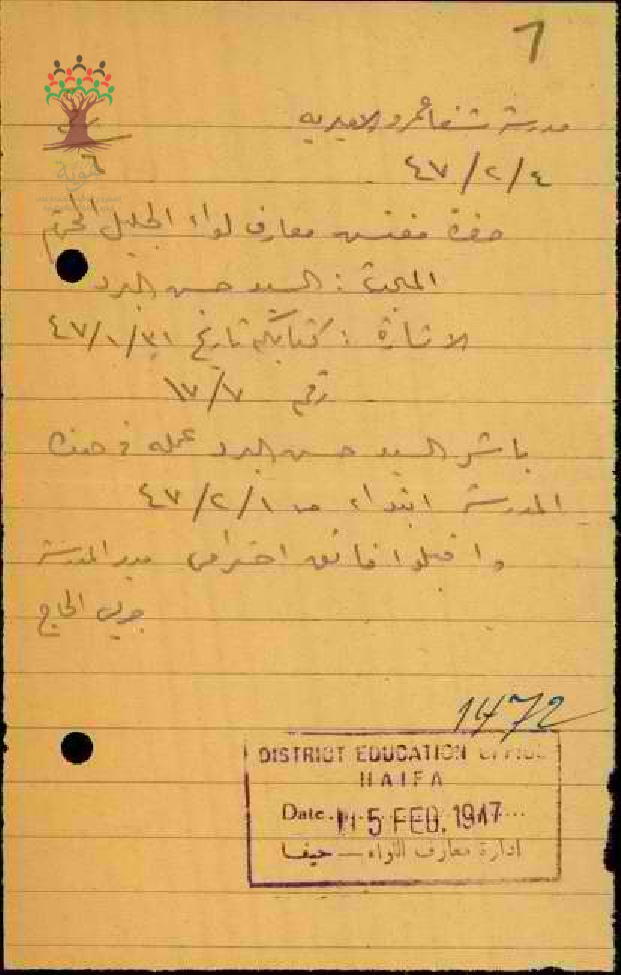 7
مدرسة شفاعمرو الاميرية
٤٧/٢/٤
حضرة مفتش معارف لواء الجليل المحترم
المبحث : السيد حسن
الاشارة : كتابكم تاريخ ٤٧/١/٣١
رقم ١٧/٧
باشر السيد حسن عمله في هذه
المدرسة ابتداء من ٤٧/٢/١
واقبلوا فائق احترامي مدير المدرسة
الحاج
1472
DISTRICT EDUCATION OFFICE
HAIFA
Date 5 FEB. 1947
ادارة معارف اللواء — حيفا